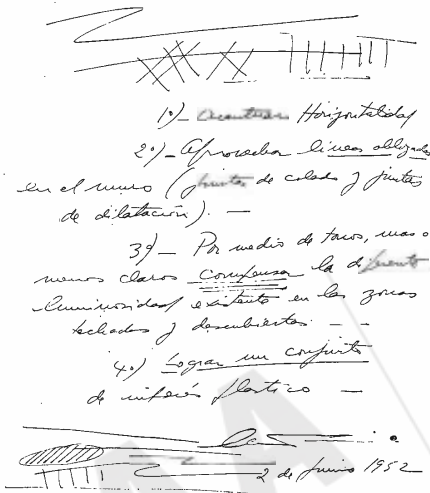 1º)- Acentuar Horizontalidad
2º)- Aprovechar líneas obligadas
en el muro (juntas de colado y juntas
de dilatación). —
3º)- Por medio de tonos, mas o
menos claros compensar la diferente
luminosidad existente en las zonas
techadas y descubiertas - -
4º) Lograr un conjunto
de interés plastico —
2 de Junio 1952